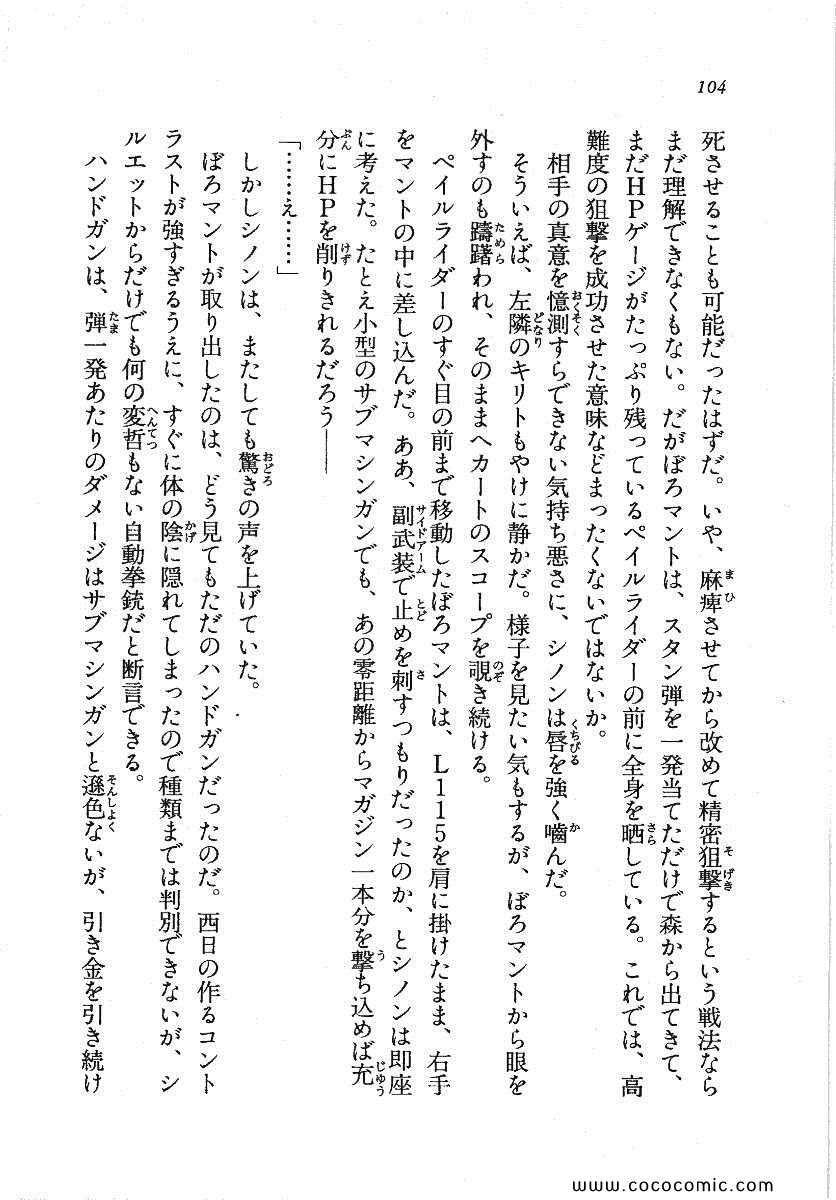 104
死させることも可能だったはずだ。いや、麻痺させてから改めて精密狙撃するという戦法なら
まだ理解できなくもない。だがぼろマントは、スタン弾を一発当てただけで森から出てきて、
まだHPゲージがたっぷり残っているペイルライダーの前に全身を晒している。これでは、高
難度の狙撃を成功させた意味などまったくないではないか。
相手の真意を憶測すらできない気持ち悪さに、シノンは唇を強く嚙んだ。
そういえば、左隣のキリトもやけに静かだ。様子を見たい気もするが、ぼろマントから眼を
外すのも躊躇われ、そのままヘカートのスコープを覗き続ける。
ペイルライダーのすぐ目の前まで移動したぼろマントは、L115を肩に掛けたまま、右手
をマントの中に差し込んだ。ああ、副武装で止めを刺すつもりだったのか、とシノンは即座
に考えた。たとえ小型のサブマシンガンでも、あの零距離からマガジン一本分を撃ち込めば充
分にHPを削りきれるだろう——
「……え……」
しかしシノンは、またしても驚きの声を上げていた。
ぼろマントが取り出したのは、どう見てもただのハンドガンだったのだ。西日の作るコント
ラストが強すぎるうえに、すぐに体の陰に隠れてしまったので種類までは判別できないが、シ
ルエットからだけでも何の変哲もない自動拳銃だと断言できる。
ハンドガンは、弾一発あたりのダメージはサブマシンガンと遜色ないが、引き金を引き続け
www.cococomic.com